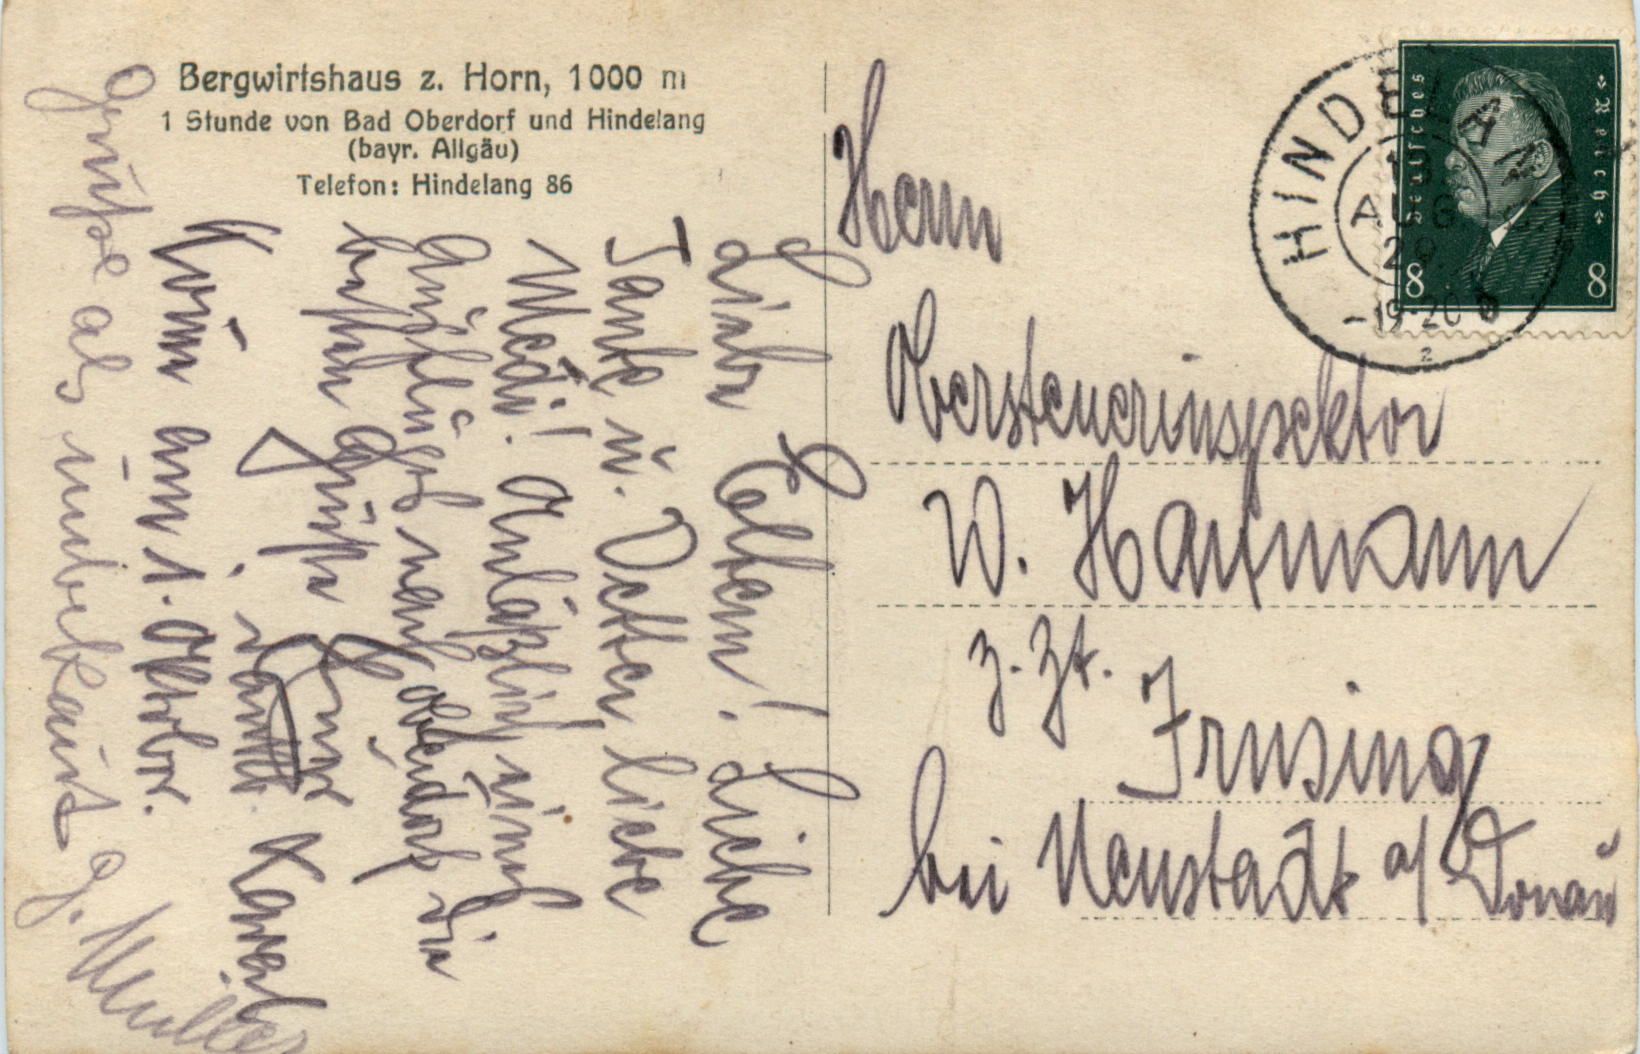 Bergwirtshaus z. Horn, 1000 m
1 Stunde von Bad Oberdorf und Hindelang
(bayr. Allgäu)
Telefon: Hindelang 86
Liebe Eltern! Liebe
Tante u. Vetter, liebe
Medi! Anläßlich eines
Ausfluges nach Oberdorf die
besten Grüße
Komm am 1. Oktober.
Grüße als unbekannt
G. Müller
Herrn
Obersteuerinspektor
W. Haufmann
z. Zt. Irnsing
bei Neustadt a/Donau
HINDELANG
AUG
29
-19-20
Deutsches Reich
8 8